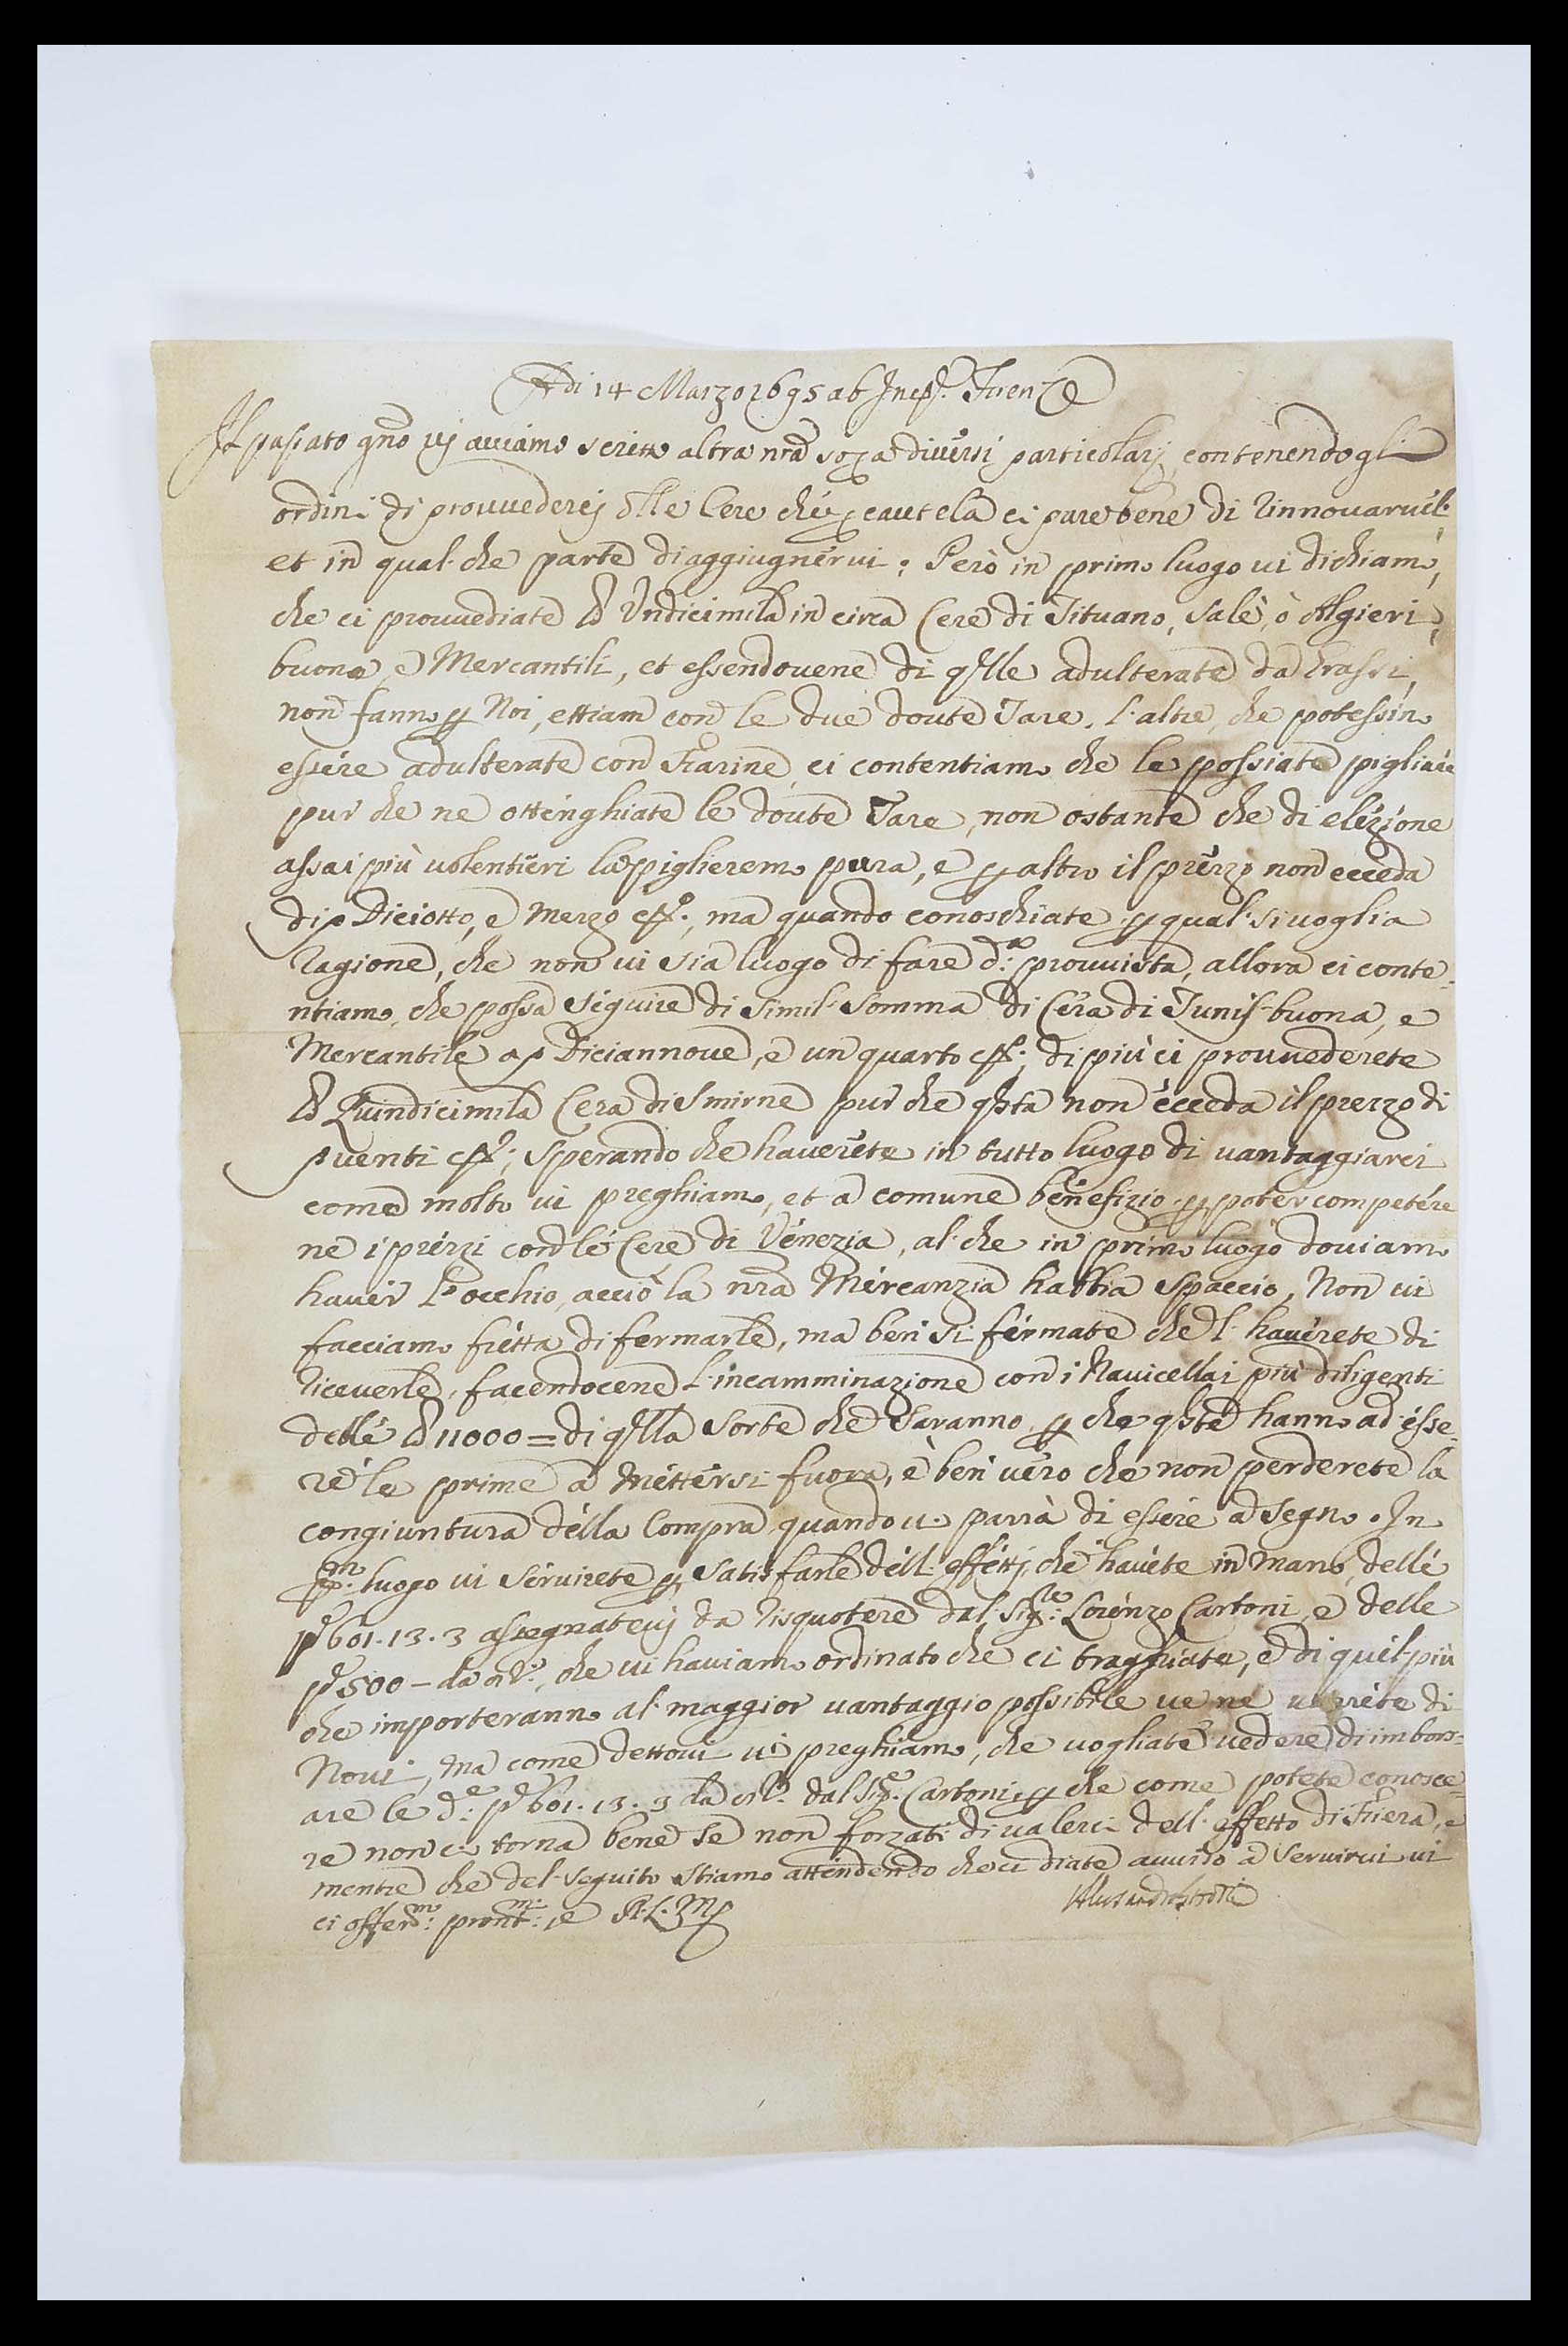 Adi 14 Marzo 1695 ab Inc.ne Firenze
Il passato gno vi aviamo scritto altra nra sopra diversi particolarj, contenendo gli
ordini di provvederej delle Cere che p cautela ci pare bene di rinnovarvele
et in qual che parte di aggiugnervi: Però in primo luogo vi dichiamo,
che ci provvediate lb Undicimila in circa Cere di Tituano, Salè, ò Algieri,
buone, e Mercantili, et essendovene di qlle adulterate da Grassi,
non fanno p Noi, ettiam con le due doute Tare, l'altre, che potessino
essere adulterate con Farine, ci contentiamo che le possiate pigliare
pur che ne ottenghiate le doute Tare, non ostante che di elezione
assai più volentieri la piglieremo pura, e p altro il prezzo non ecceda
di p Diciotto, e Mezzo eff.o, ma quando conoschiate p qual si voglia
ragione, che non vi sia luogo di fare d.a provvista, allora ci conte-
ntiamo, che possa seguire di simil somma di Cera di Tunis buona, e
Mercantile a p Diciannove, e un quarto eff.; di più ci provvederete
lb Quindicimila Cera di Smirne pur che qsta non ecceda il prezzo di
p venti eff.; sperando che haverete in tutto luogo di vantaggiarci
come molto vi preghiamo, et a comune benefizio p poter competere
ne i prezzi con le Cere di Venezia, al che in primo luogo doviamo
haver l'occhio, acciò la nra Mercanzia habbia spaccio, Non vi
facciamo fretta di fermarle, ma ben si fermate che l' haverete di
riceverle, facendocene l'incamminazione con i Navicellai più diligenti
delle lb 11000 = di qlla sorte che saranno, p che qste hanno ad esse-
re le prime a mettersi fuora, è ben vero che non perderete la
congiuntura della Compra quando vi parrà di essere a segno. In
p.mo luogo vi servirete p satisfarle dell' effettj, che havete in mano, delle
p 601.13.3 assegnatevj da risquotere dal Sig.re Lorenzo Cartoni, e delle
p 500 - da , che vi haviamo ordinato che ci tragghiate, e di quel più
che importeranno al maggior vantaggio possibile ve ne varrete di
Novi, ma come dettovi vi preghiamo, che vogliate vedere di imbors-
are le d.e p 601.13.3 da dal Sig.e Cartoni, p che come potete conosce-
re non ci torna bene se non forzati di valerci dell' effetto di Fiera, e
mentre che del seguito stiamo attendendo che ci diate avviso a servirvi vi
ci offer.mo pront.mi, e